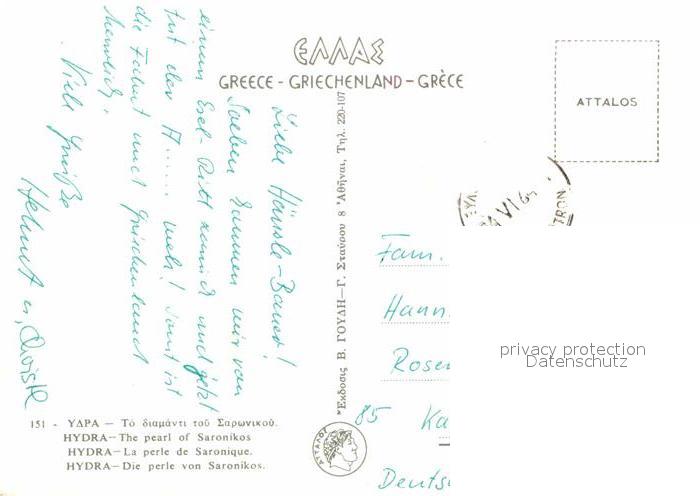 ΕΛΛΑΣ
GREECE - GRIECHENLAND - GRÈCE
ATTALOS
VI 65
TRON
Liebe Hänsle-Bauer!
Soeben kommen wir von
einem Esel-Ritt zurück und jetzt
tut der A...... weh! Sonst ist
die Fahrt und Griechenland
herrlich.
Viele Grüße
Helmut u. Christl
Ἔκδοσις Β. ΓΟΥΔΗ—Γ. Σταύρου 8 Ἀθῆναι, Τηλ. 220-107
Fam.
Hann
Rosen
85 Ka
Deuts
privacy protection
Datenschutz
ΑΤΤΑΛΟΣ
151 - ΥΔΡΑ — Τὸ διαμάντι τοῦ Σαρωνικοῦ.
HYDRA—The pearl of Saronikos
HYDRA—La perle de Saronique.
HYDRA—Die perle von Saronikos.